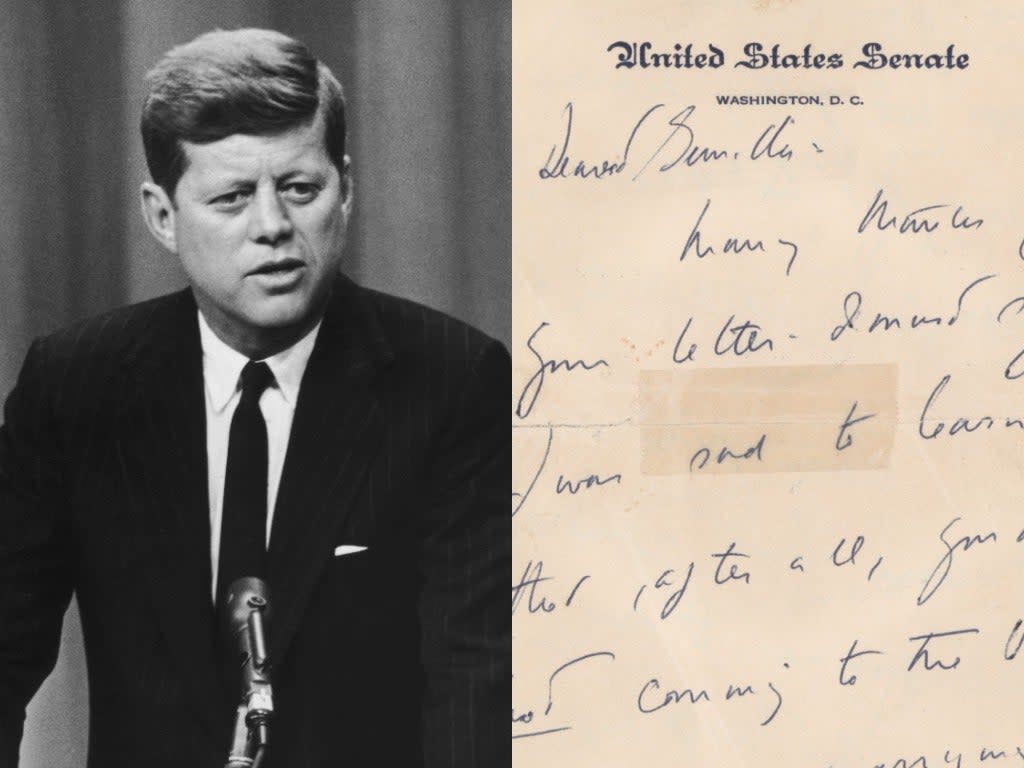 United States Senate
WASHINGTON, D. C.
Dearest Gunilla -
Many thanks
your letter -
I was sad to learn
that, after all, you a
not coming to the U
marryin